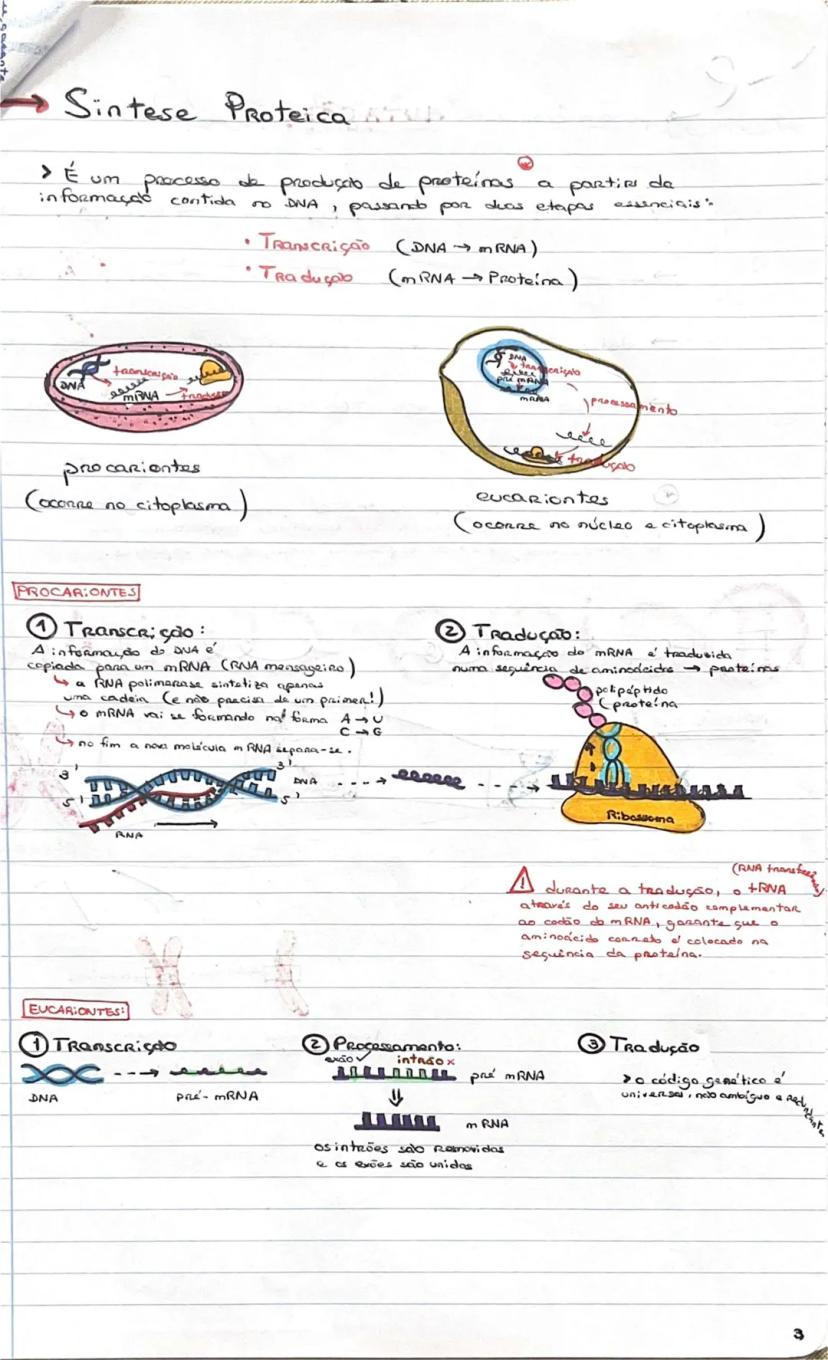 → Síntese Proteica
> É um processo de produção de proteínas a partir da
informação contida no DNA, passando por duas etapas essenciais:
• Transcrição (DNA → mRNA)
• Tradução (mRNA → Proteína)
DNA
transcrição
mRNA
tradução
DNA
transcrição
pré mRNA
mRNA
processamento
tradução
procariontes
(ocorre no citoplasma)
eucariontes
(ocorre no núcleo e citoplasma)
PROCARIONTES
① Transcrição:
A informação do DNA é
copiada para um mRNA (RNA mensageiro)
↳ a RNA polimerase sintetiza apenas
uma cadeia (e não precisa de um primer!)
↳ o mRNA vai se formando na forma A → U
C → G
↳ no fim a nova molécula mRNA separa-se.
3' 3' DNA
5' 5'
RNA
② Tradução:
A informação do mRNA é traduzida
numa sequência de aminoácidos → proteínas
polipéptido
(proteína
Ribossoma
(RNA transferência)
⚠ durante a tradução, o tRNA
através do seu anticodão complementar
ao codão do mRNA, garante que o
aminoácido correto é colocado na
sequência da proteína.
EUCARIONTES:
① Transcrição
DNA
pré-mRNA
② Processamento:
exão ✓ intrão x
pré mRNA
mRNA
os intrões são removidos
e os exões são unidos
③ Tradução
> o código genético é
universal, não ambíguo e redundante
3